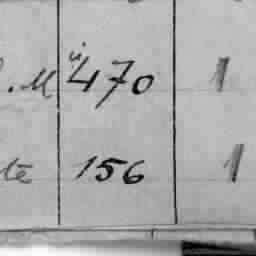 . M 470 1
te 156 1